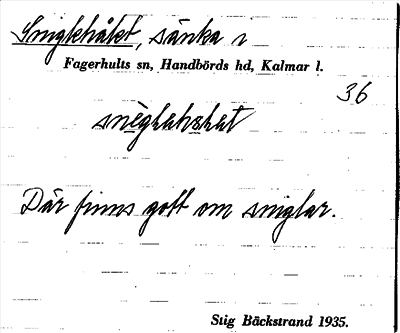 Sniglehålet, sänka i
Fagerhults sn, Handbörds hd, Kalmar l.
36
Där finns gott om sniglar.
Stig Bäckstrand 1935.